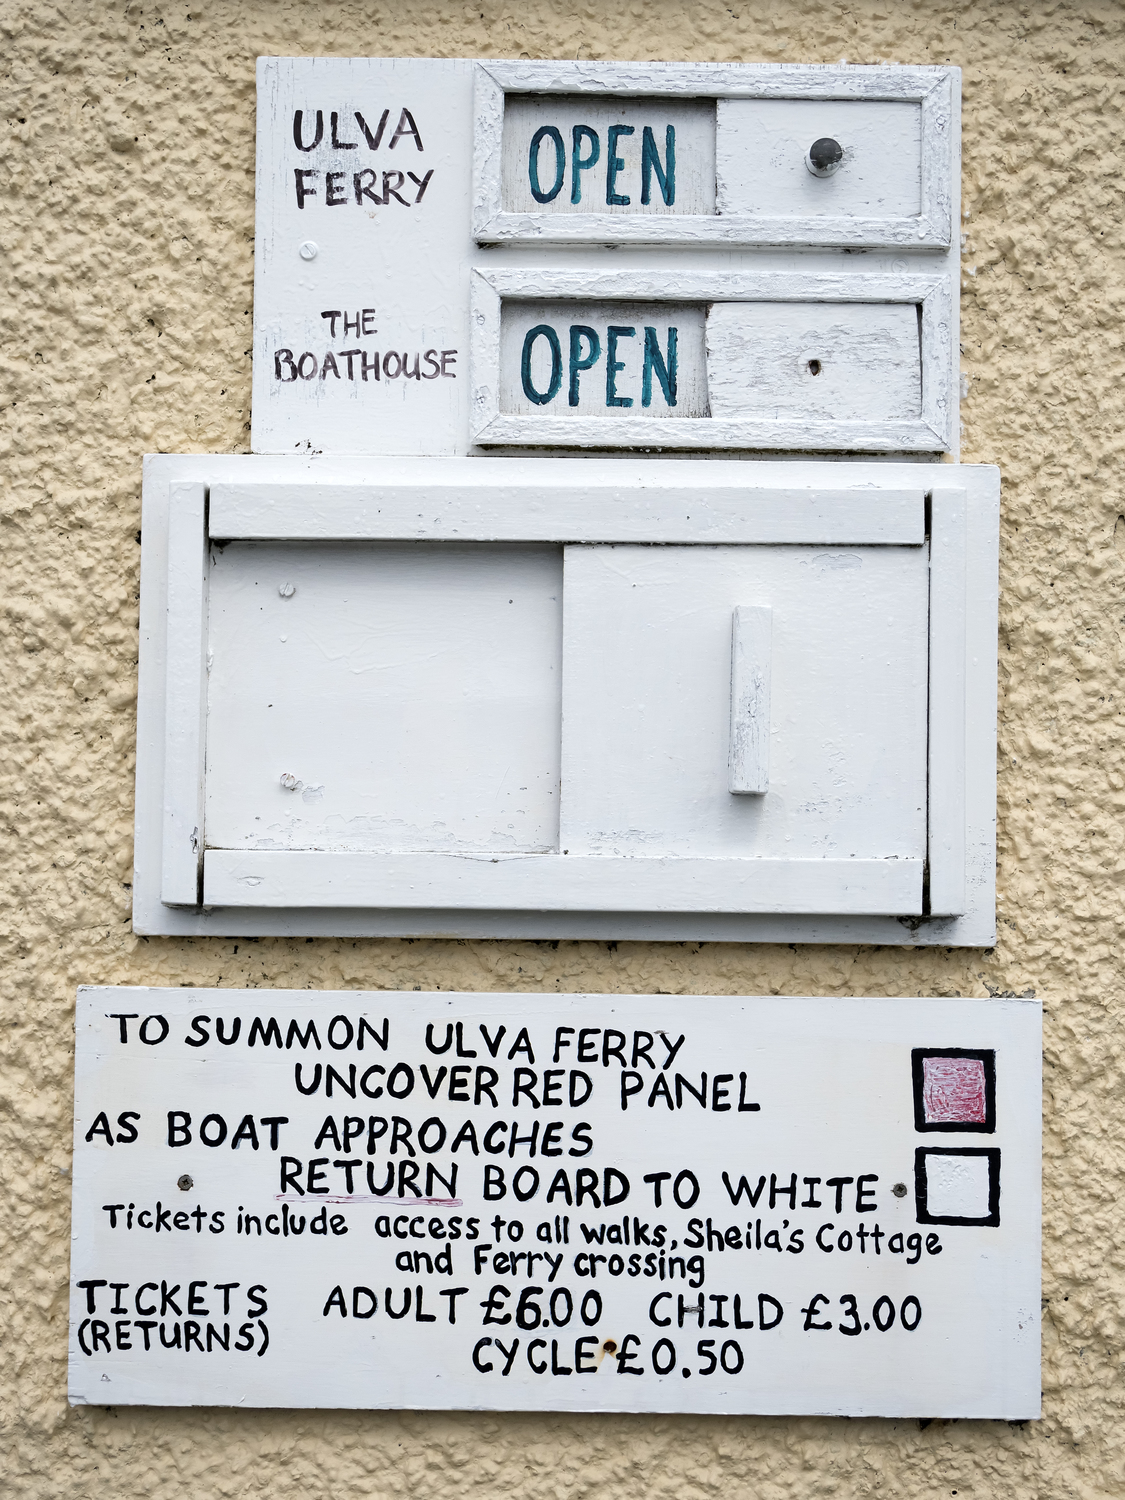 ULVA
FERRY
OPEN
THE
BOATHOUSE
OPEN
TO SUMMON ULVA FERRY
UNCOVER RED PANEL
AS BOAT APPROACHES
RETURN BOARD TO WHITE
Tickets include access to all walks, Sheila's Cottage
and Ferry crossing
TICKETS ADULT £6.00 CHILD £3.00
(RETURNS)
CYCLE £0.50